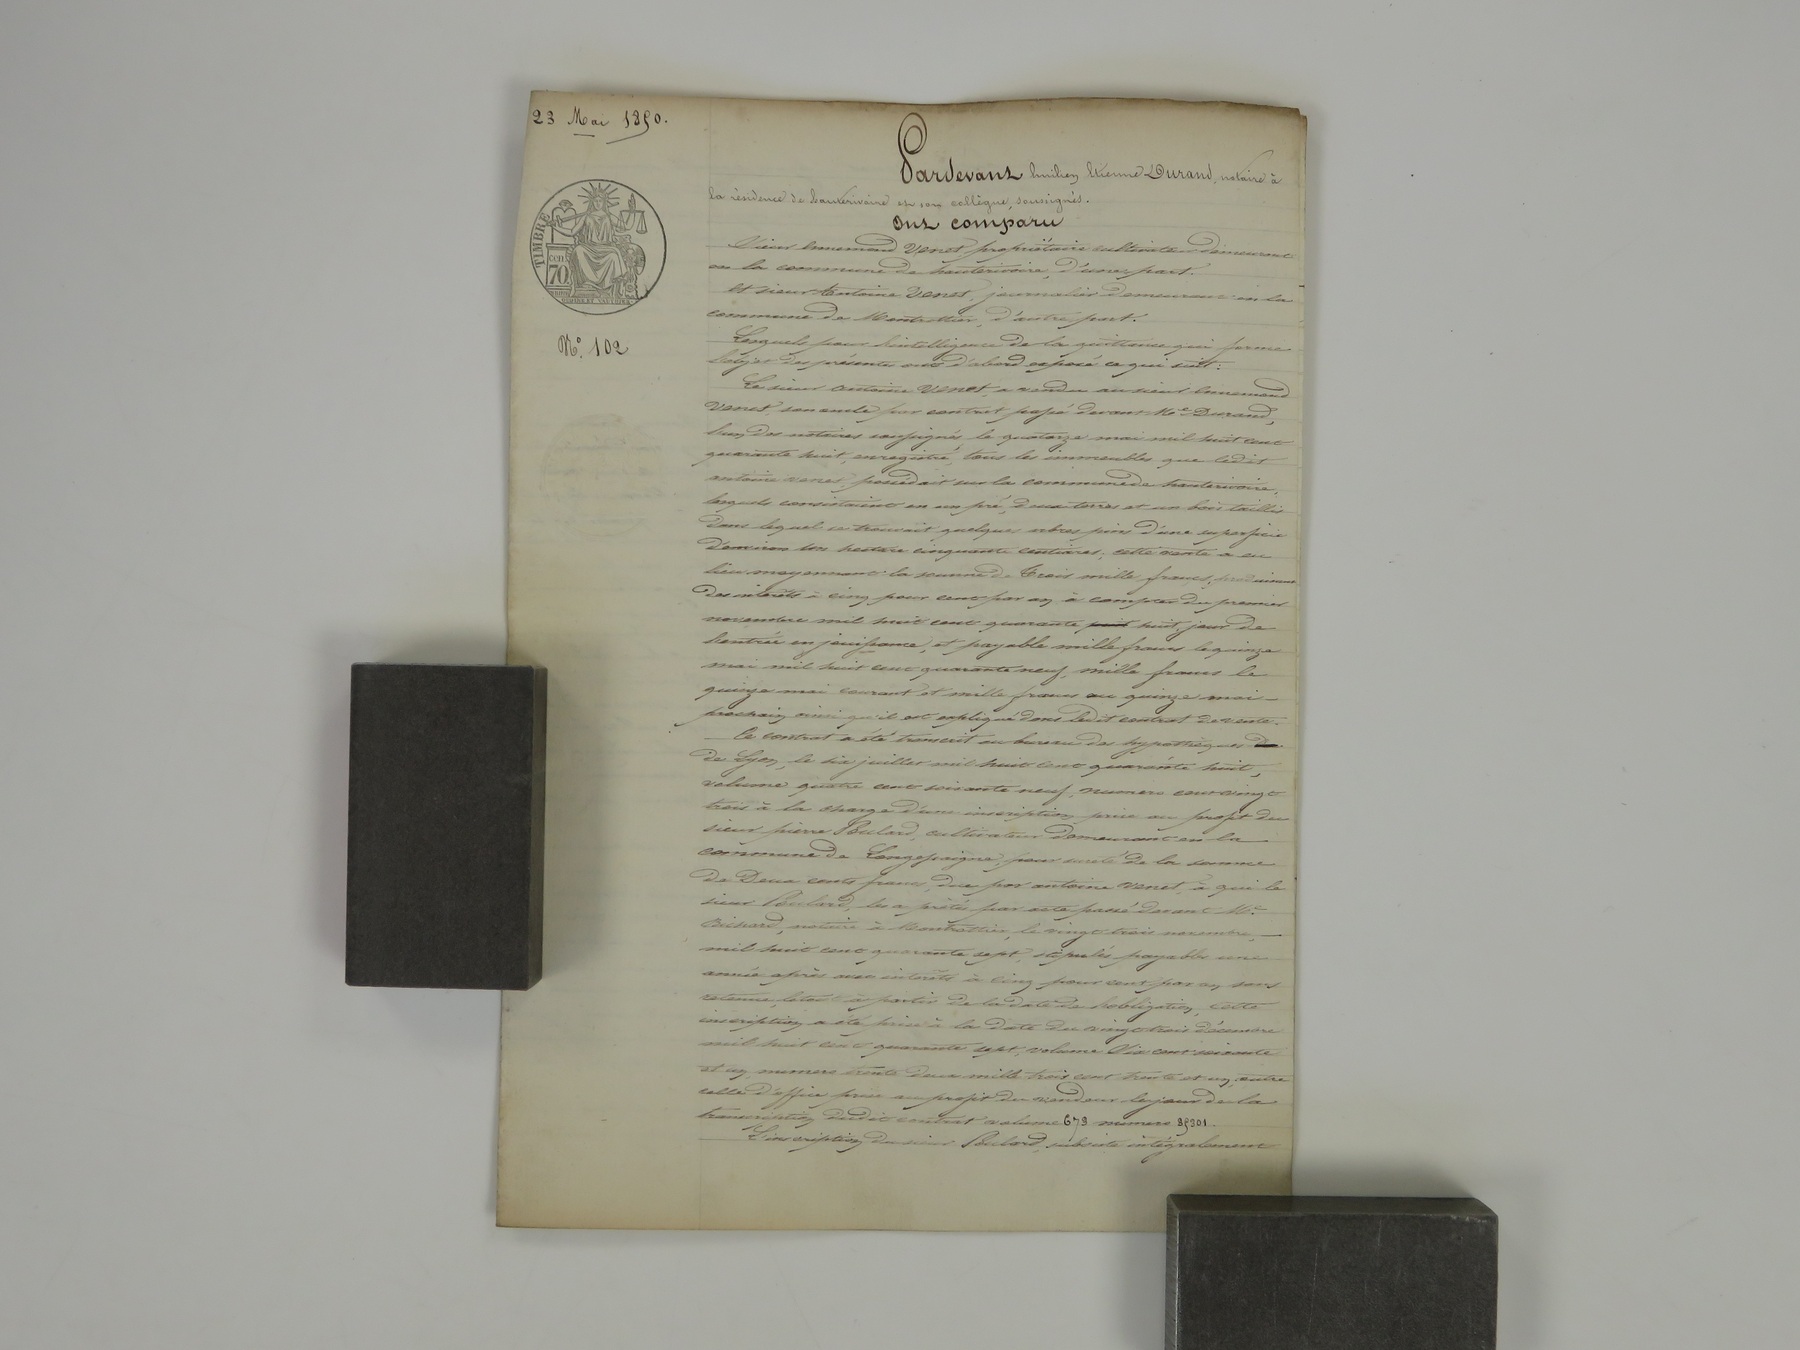 23 Mai 1850.
TIMBRE
cen
70
N.° 102
Pardevant Etienne Durand, notaire à
la résidence de hauterivoire et son collègue, soussignés.
Ont comparu
Sieur Ennemond Venet, propriétaire cultivateur demeurant
en la commune de hauterivoire, d'une part.
Et sieur Antoine Venet, journalier demeurant en la
commune de Montrottier, d'autre part.
Lesquels pour l'intelligence de la quittance qui forme
l'objet des présentes ont d'abord exposé ce qui suit:
Le sieur antoine Venet, a vendu au sieur Ennemond
Venet, son oncle par contrat passé devant Me Durand,
l'un des notaires soussignés le quatorze mai mil huit cent
quarante huit, enregistré, tous les immeubles que ledit
antoine venet, possedait sur la commune de hauterivoire,
lesquels consistaient en un pré, deux terres et un bois taillis
dans lequel se trouvait quelques arbres pins d'une superficie
d'environ un hectare cinquante centiares, cette vente a eu
lieu moyennant la somme de trois mille francs, produisant
des intérêts à cinq pour cent par an à compter du premier
novembre mil huit cent quarante huit, jour de
l'entrée en jouissance, et payable mille francs le quinze
mai mil huit cent quarante neuf, mille francs le
quinze mai courant et mille francs au quinze mai
prochain, ainsi qu'il est expliqué dans ledit contrat de vente.
Ce contrat a été transcrit au bureau des hypothèques
de Lyon, le six juillet mil huit cent quarante huit,
volume quatre cent soixante neuf, numéro cent vingt
trois à la charge d'une inscription prise au profit du
sieur pierre Poulard, cultivateur demeurant en la
commune de Longessaigne, pour sureté de la somme
de Deux cents francs, due par antoine venet, à qui le
sieur Poulard, les a prêtés par acte passé devant Me
notaire à Montrottier, le vingt trois novembre,
mil huit cent quarante sept, stipulés payables une
année après avec intérêts à cinq pour cent par an sans
retenue, le tout à partir de la date de l'obligation, Cette
inscription a été prise à la date du vingt trois décembre
mil huit cent quarante sept, volume Six cent soixante
et un, numéro trente deux mille trois cent trente et un, outre
celle d'office prise au profit du vendeur le jour de la
transcription dudit contrat volume 673 numéro 35301.
L'inscription du sieur Poulard, subsiste intégralement